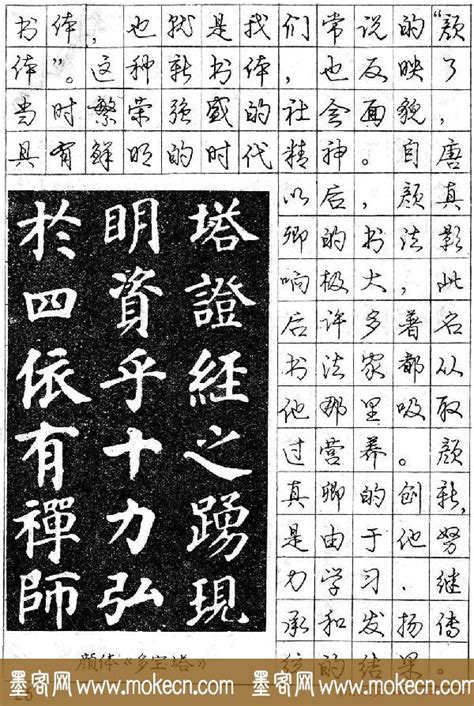 书体，也就是我们常说的“颜
体”。这种新书体，也反映了
当时繁荣强盛的社会面貌，
具有鲜明的时代精神。自唐
以后，颜真
卿的书法影
响极大，此
后许多著名
书法家都从
他那里吸取
过营养。颜
真卿的创新，
是由于他努
力学习、继
承和发扬传
统的结果。
塔證經之踴現
明資乎十力弘
於四依有禪師
颜体《多宝塔》
墨客网 www.mokecn.com 墨客网 www.mokecn.com